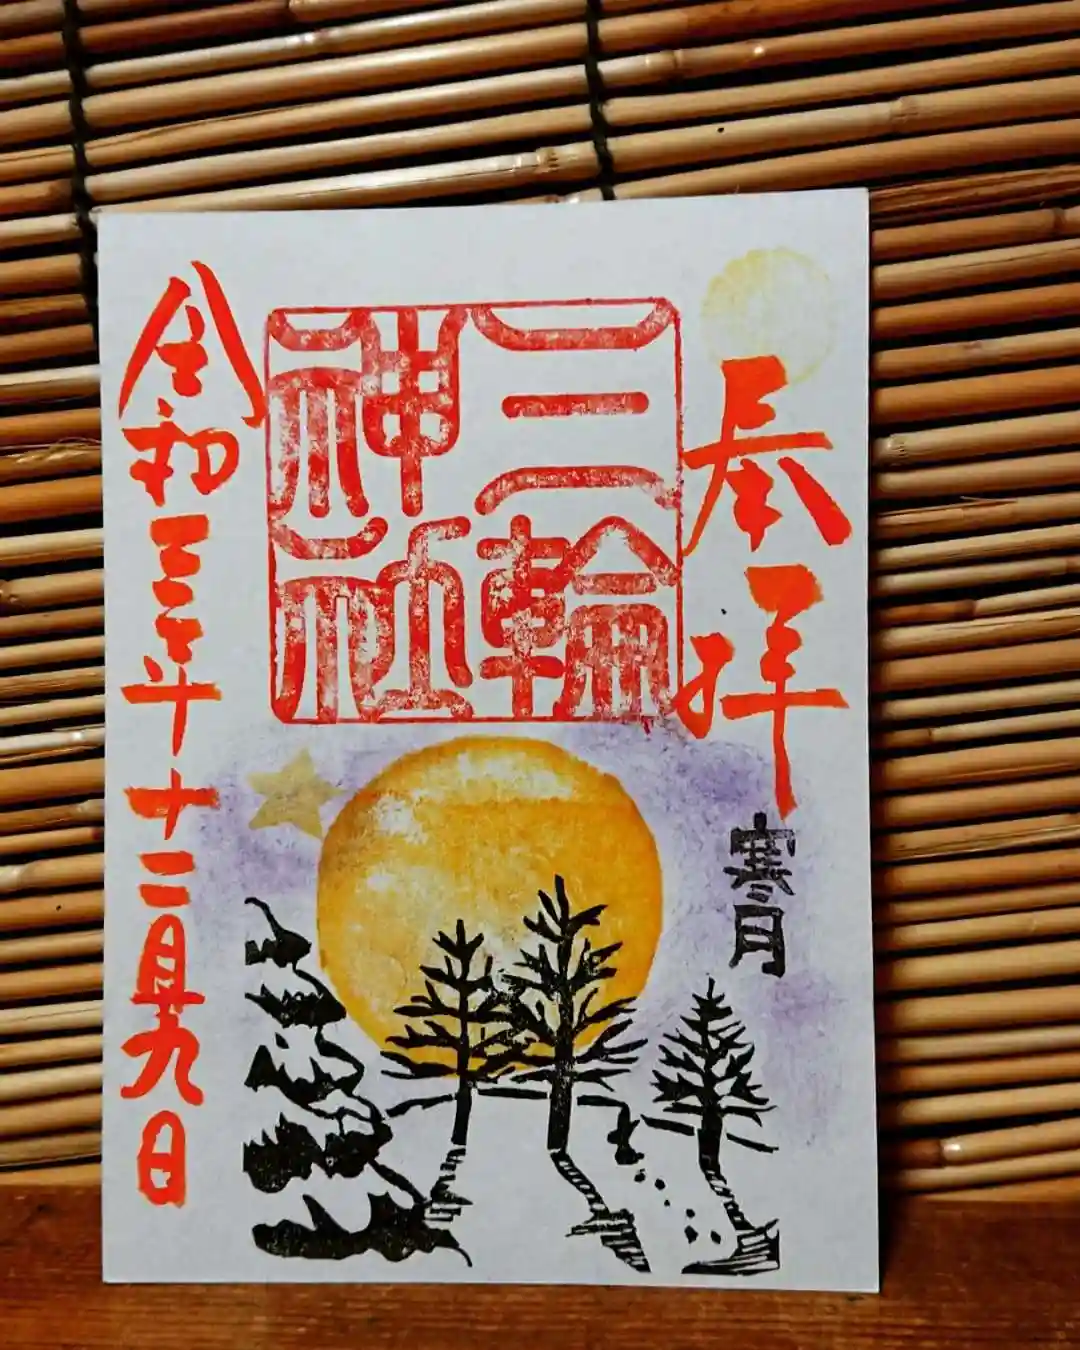 奉拝
寒月
三輪
神社
令和三年十二月十九日